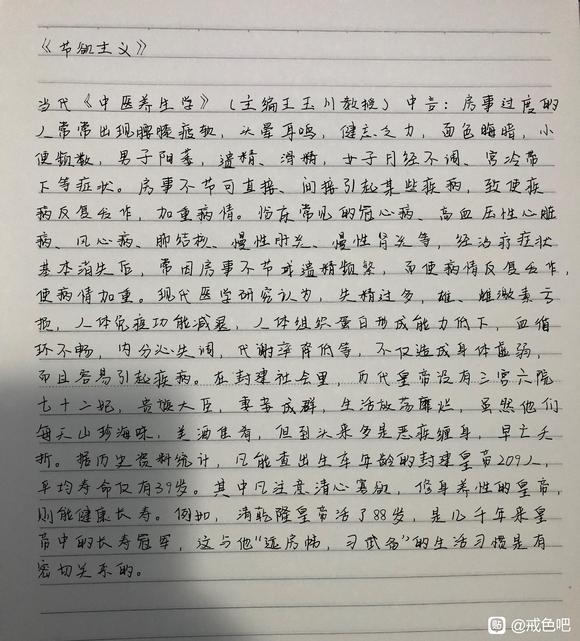 《节欲主义》
当代《中医养生学》(主编王玉川教授)中言:房事过度的
人常常出现腰膝疲软,头晕耳鸣,健忘乏力,面色晦暗,小
便频数,男子阳萎,遗精、滑精,女子月经不调、宫冷带
下等症状。房事不节可直接、间接引起某些疾病,致使疾
病反复发作,加重病情。临床常见的冠心病、高血压性心脏
病、风心病、肺结核、慢性肝炎、慢性肾炎等,经治疗症状
基本消失后,常因房事不节或遗精频繁,而使病情反复发作,
使病情加重。现代医学研究认为,失精过多,雄、雌激素亏
损,人体免疫功能减退,人体组织蛋白形成能力低下,血循
环不畅,内分泌失调,代谢率降低等,不仅造成身体虚弱,
而且容易引起疾病。在封建社会里,历代皇帝设有三宫六院
七十二妃,贵族大臣,妻妾成群,生活放荡靡烂,虽然他们
每天山珍海味,美酒佳肴,但到头来多是恶疾缠身,早亡夭
折。据历史资料统计,凡能查出生卒年龄的封建皇帝209人,
平均寿命仅有39岁。其中凡注意清心寡欲,修身养性的皇帝,
则能健康长寿。例如,清乾隆皇帝活了88岁,是几千年来皇
帝中的长寿冠军,这与他“远房帏,习武备”的生活习惯是有
密切关系的。
贴 @戒色吧